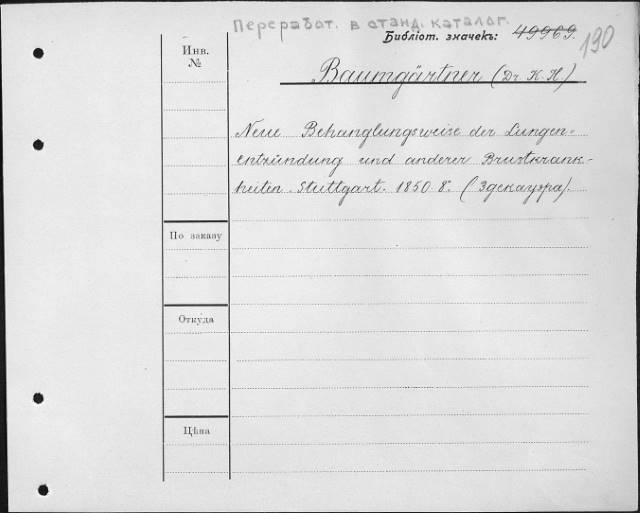 Переработ. в станд. каталог.
Библіот. значекъ: 49969. 190
Инв.
№
Baumgärtner (Dr. K. H.)
Neue Behanglungsweise der Lungen-
entzündung und anderer Brustkrank-
heiten. Stuttgart. 1850. 8°. (Здекауэра).
По заказу
Откуда
Цѣна